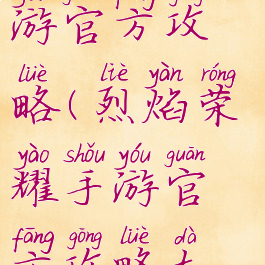 游官方攻
lüè liè yàn róng
略(烈焰荣
yào shǒu yóu guān
耀手游官
fāng gōng lüè dà
方攻略大